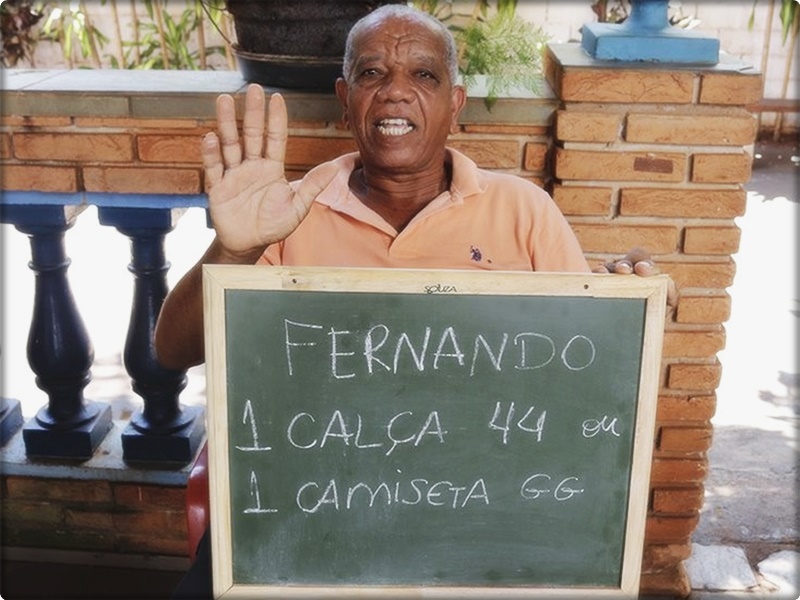 SOUZA
FERNANDO
1 CALÇA 44 ou
1 CAMISETA GG